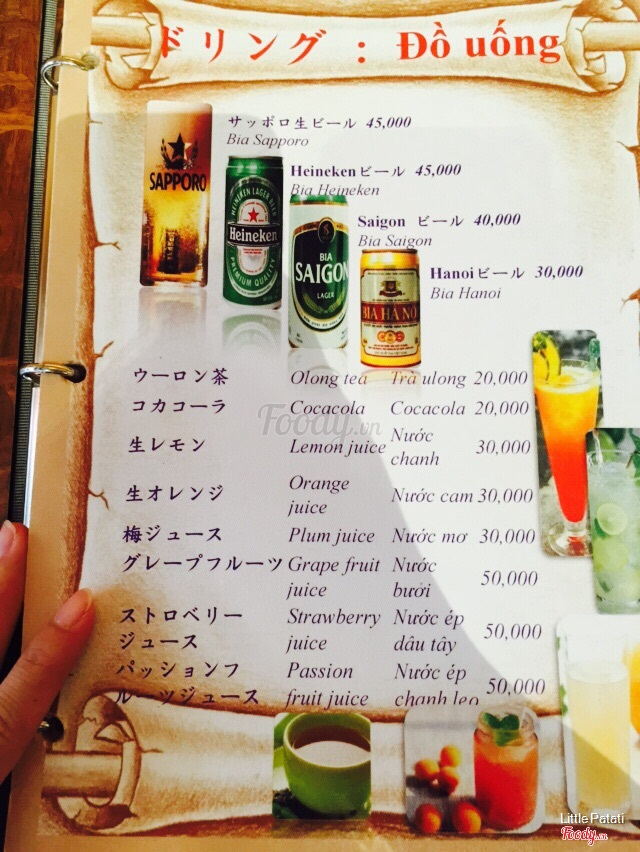 ドリング : Đồ uống
サッポロ生ビール 45,000
Bia Sapporo
Heinekenビール 45,000
Bia Heineken
Saigon ビール 40,000
Bia Saigon
Hanoiビール 30,000
Bia Hanoi
SAPPORO
HEINEKEN LAGER BEER
Heineken
PREMIUM QUALITY
BIA
SAIGON
LAGER
BIA HÀ NỘI
ウーロン茶 Olong tea Trà ulong 20,000
コカコーラ Cocacola Cocacola 20,000
生レモン Lemon juice Nước chanh 30,000
生オレンジ Orange juice Nước cam 30,000
梅ジュース Plum juice Nước mơ 30,000
グレープフルーツ Grape fruit juice Nước bưởi 50,000
ストロベリージュース Strawberry juice Nước ép dâu tây 50,000
パッションフルーツジュース Passion fruit juice Nước ép chanh leo 50,000
Foody.vn
Little Patati
Foody.vn